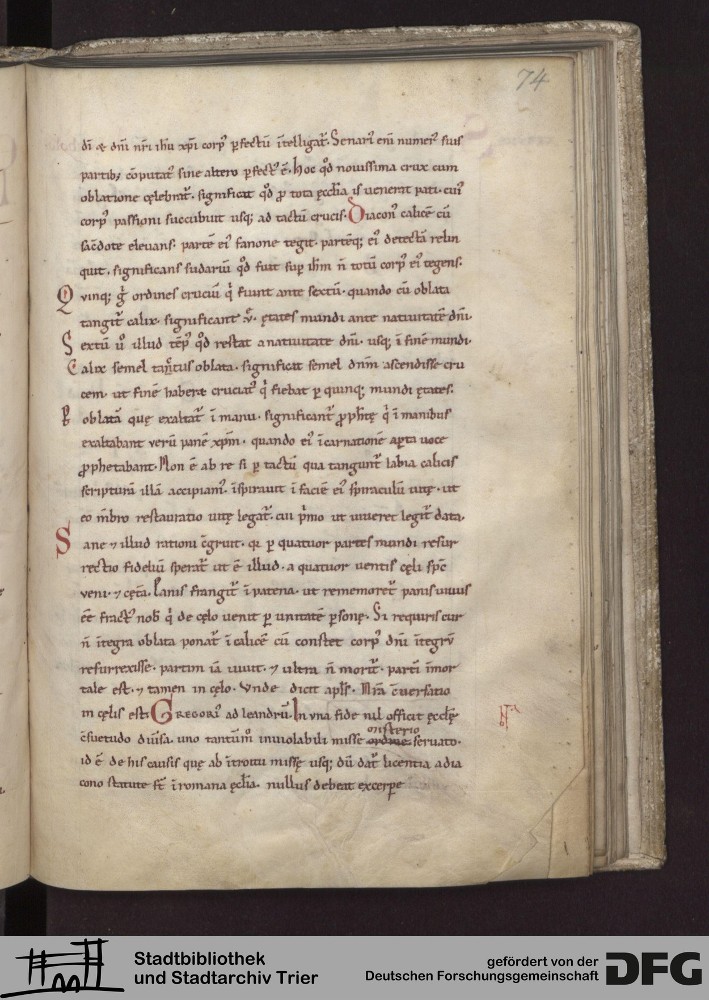 74
dī & dn̄i nr̄i ihū xp̄i corp᷒ ꝑfectū ītelligat᷒. Senari᷒ eni numer᷒ suis
partib; cōputat᷒ sine altero ꝑfect᷒ ē. Hoc qd̄ nouissima crux cum
oblatione cęlebrat᷒. significat qd̄ ꝓ tota ęcclīa is uenerat pati. cui᷒
corp᷒ passioni succubuit usq; ad tactū crucis. Diacon᷒ calicē cū
sac̄dote eleuans. partē ei᷒ fanone tegit. partēq; ei᷒ detectā relin
quit. significans sudariū qd̄ fuit suꝑ ihm̄ n̄ totū corp᷒ ei᷒ tegens.
Q uinq; g̊ ordines cruciū q̇ fiunt ante sextū. quando cū oblata
tangit᷒ calix. significant v̊. ętates mundi ante natiuitatē dn̄i.
S extū u̇ illud tēp᷒ qd̄ restat a natiuitate dn̄i. usq; ī finē mundi.
C alix semel tanctus oblata. significat semel dnm̄ ascendisse cru
cem. ut finē haberet cruciat᷒ q̇ fiebat ꝑ quinq; mundi ętates.
oblatā quę exaltat᷒ ī manu. significant᷒ ꝓphetę q̇ ī manibus
exaltabant uerū panē xpm̄. quando ei᷒ īcarnationē aꝑta uoce
ꝓphetabant. Non ē ab re si ꝑ tactū qua tangunt᷒ labia calicis
scripturā illā accipiam᷒. īspirauit ī faciē ei᷒ spiraculū uitę. ut
eo mēbro restauratio uitę legat᷒. cui pͥmo ut uiueret legit᷒ data.
S ane ⁊ illud rationi cōgruit. qͥ ꝑ quatuor partes mundi resur
rectio fideliū sperat᷒ ut ē illud. a quatuor uentis cęli spc̄
ueni. ⁊ cęt̄a. Panis frangit᷒ ī patena. ut rememoret᷒ panis uiuus
ēē fract᷒ nob̄ q̇ de cęlo uenit ꝑ unitatē ꝑsonę. Si requiris cur
n̄ ītegra oblata ponat᷒ ī calicē cū constet corp᷒ dn̄i ītegrū
resurrexisse. partim iā uiuit. ⁊ ultra n̄ morit᷒. partī īmor
tale est. ⁊ tamen in cęlo. Vnde dicit apl̄s. Nr̄a cōuersatio
in cęlis est. GREGORI᷒ ad leandrū. In una fide nil officit ęccl̄ę
misterio
cōsuetudo diūsa. uno tantūm᷒ inuiolabili misse ordine seruato.
id ē de his causis quę ab ītroitu missę usq; dū dat᷒ licentia adia
cono statute st̄ ī romana ęclīa. nullus debeat excerꝑe
Stadtbibliothek
und Stadtarchiv Trier
gefördert von der
Deutschen Forschungsgemeinschaft
DFG